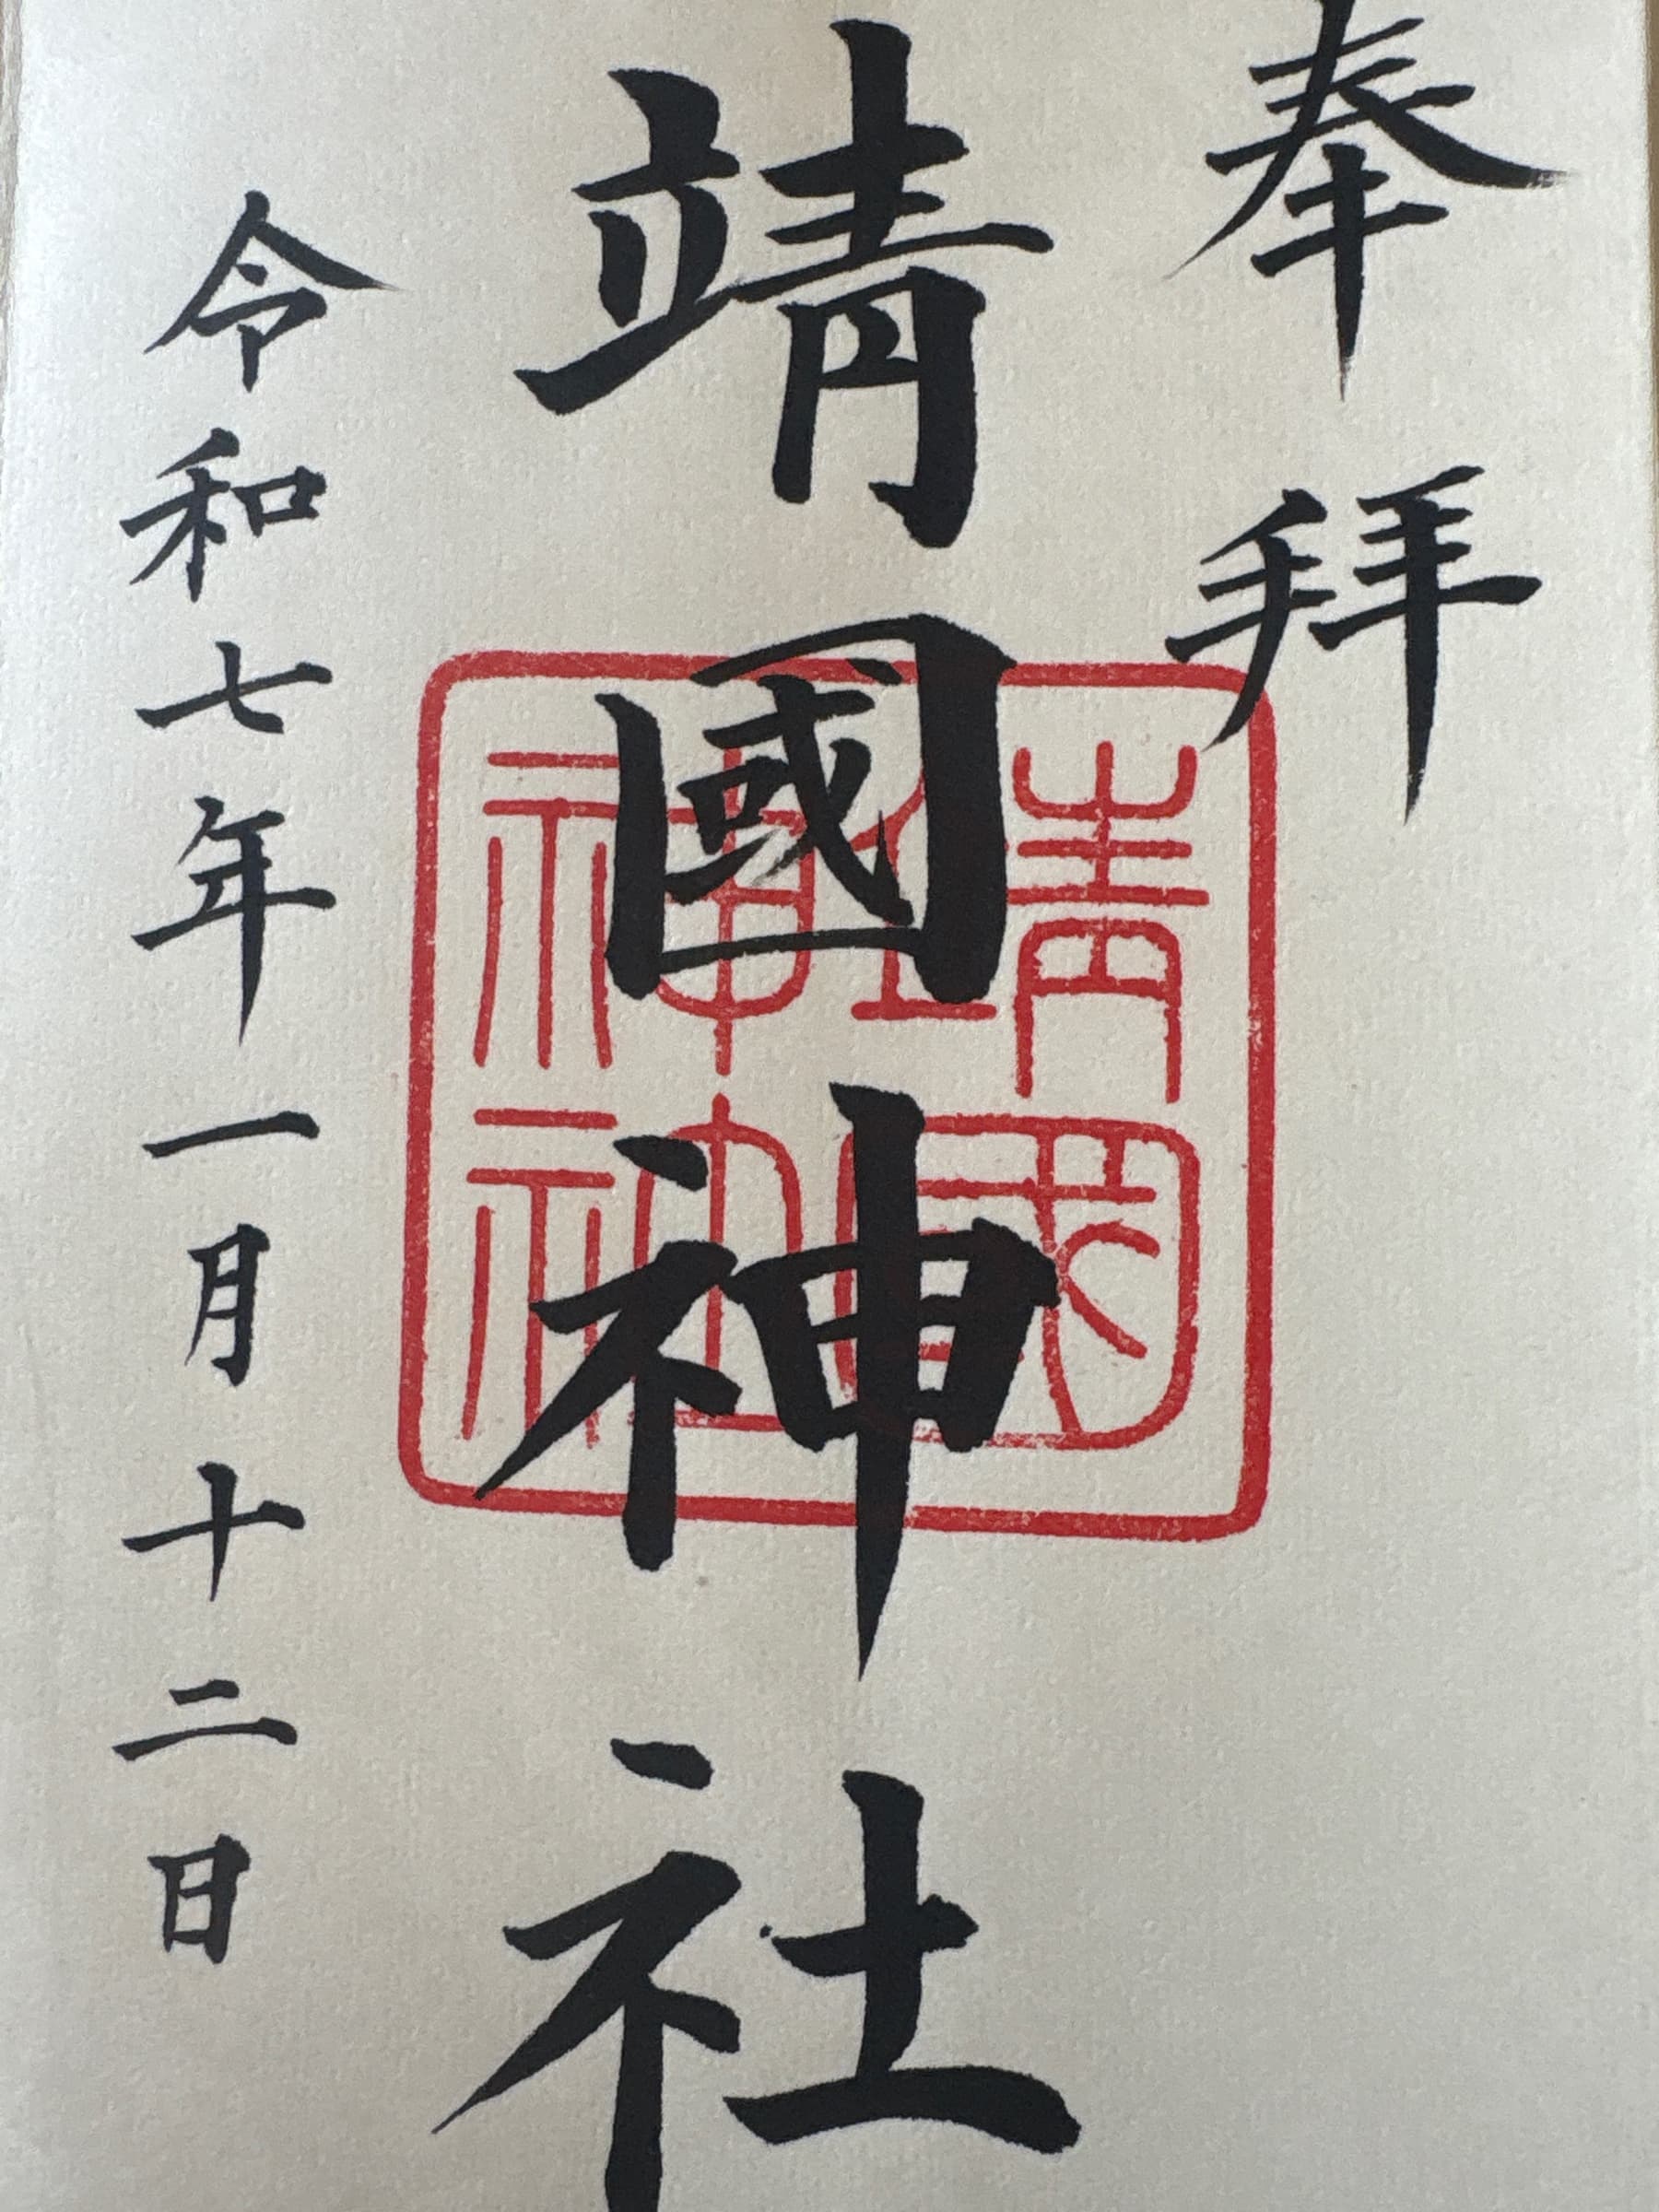 奉拝
靖國神社
靖國神社
令和七年一月十二日